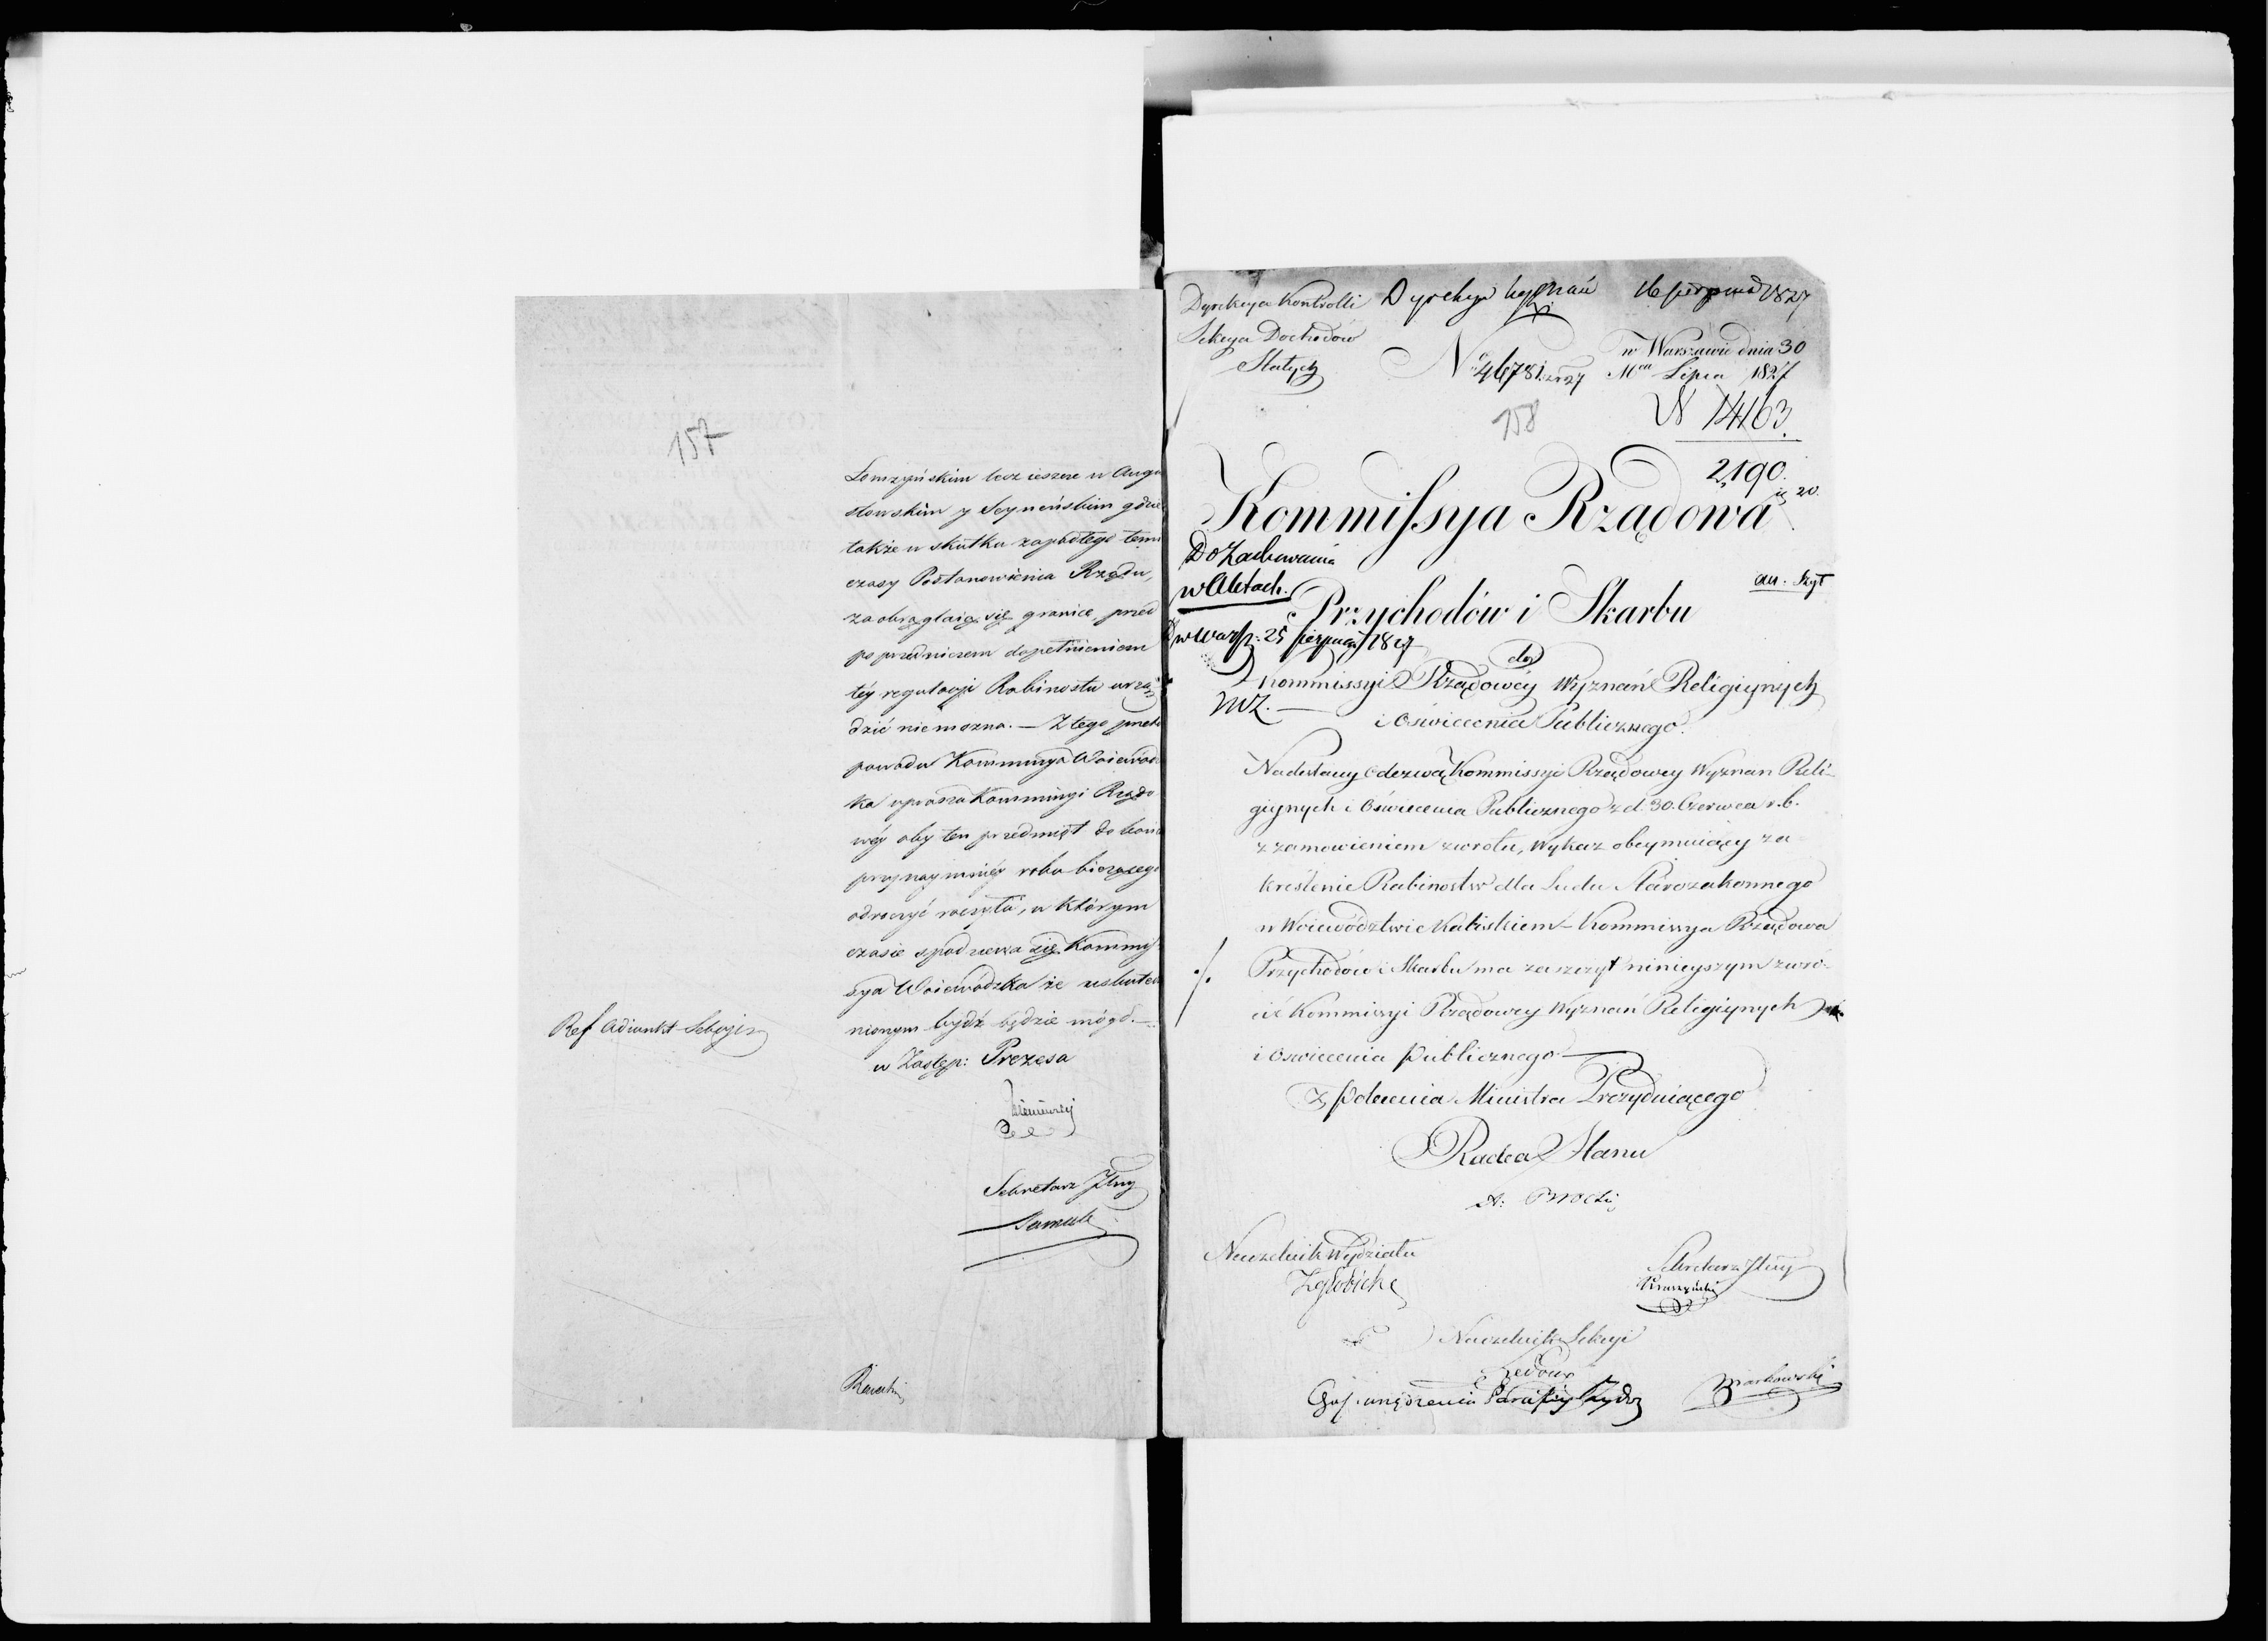 157
Łomzyńskim lecz ieszcze w Augu
stowskim y Seyneńskim gdzie
także w skutku zapadłego temi
czasy Postanowienia Rządu,
zaokrąglaią się granice, przed
poprzedniczem dopełnieniem
téy regulacyi Rabinostw urzą
dzić niemozna. — Z tego
powodu Kommissya Woiewódz
ka uprasza Kommissyi Rządo
wéy aby ten przedmiot do końca
przynaymniéy roku bieżącego
odroczyć raczyła, w którym
czasie spodziewa się Kommis
sya Woiewódzka że uskutecz
nionym bydź będzie mógł. —
Ref Adiunkt Sekcyi
w Zastęp: Prezesa
Sekretarz Jlny
Dyrekcya Kontrolli Dyrekcya Wyznań 16 sierpnia 1827
Sekcya Dochodów
Stałych
w Warszawie dnia 30
Nº 46781 Mca Lipca 1827
158
N 14163.
2,190.
Kommissya Rządowa
Do Zachowania
w Aktach.
Przychodów i Skarbu
w Warsz: 25 sierpnia 1827
do
Kommissyi Rządowéy Wyznań Religiynych
i Oświecenia Publicznego.
Nadesłany odezwą Kommissyi Rządowey Wyznań Reli-
giynych i Oświecenia Publicznego z d. 30. Czerwca r. b.
z zamowieniem zwrotu, Wykaz obeymuiący za-
kreślenie Rabinostw dla Ludu Starozakonnego
w Woiewództwie Kaliskiem – Kommissya Rządowa
Przychodów i Skarbu ma zaszczyt ninieyszym zwró-
cić Kommissyi Rządowey Wyznań Religiynych
i Oświecenia Publicznego —
Z polecenia Ministra Prezyduiącego
Radca Stanu
Naczelnik Wydziału
Sekretarz Jlny
Naczelnik Sekcyi